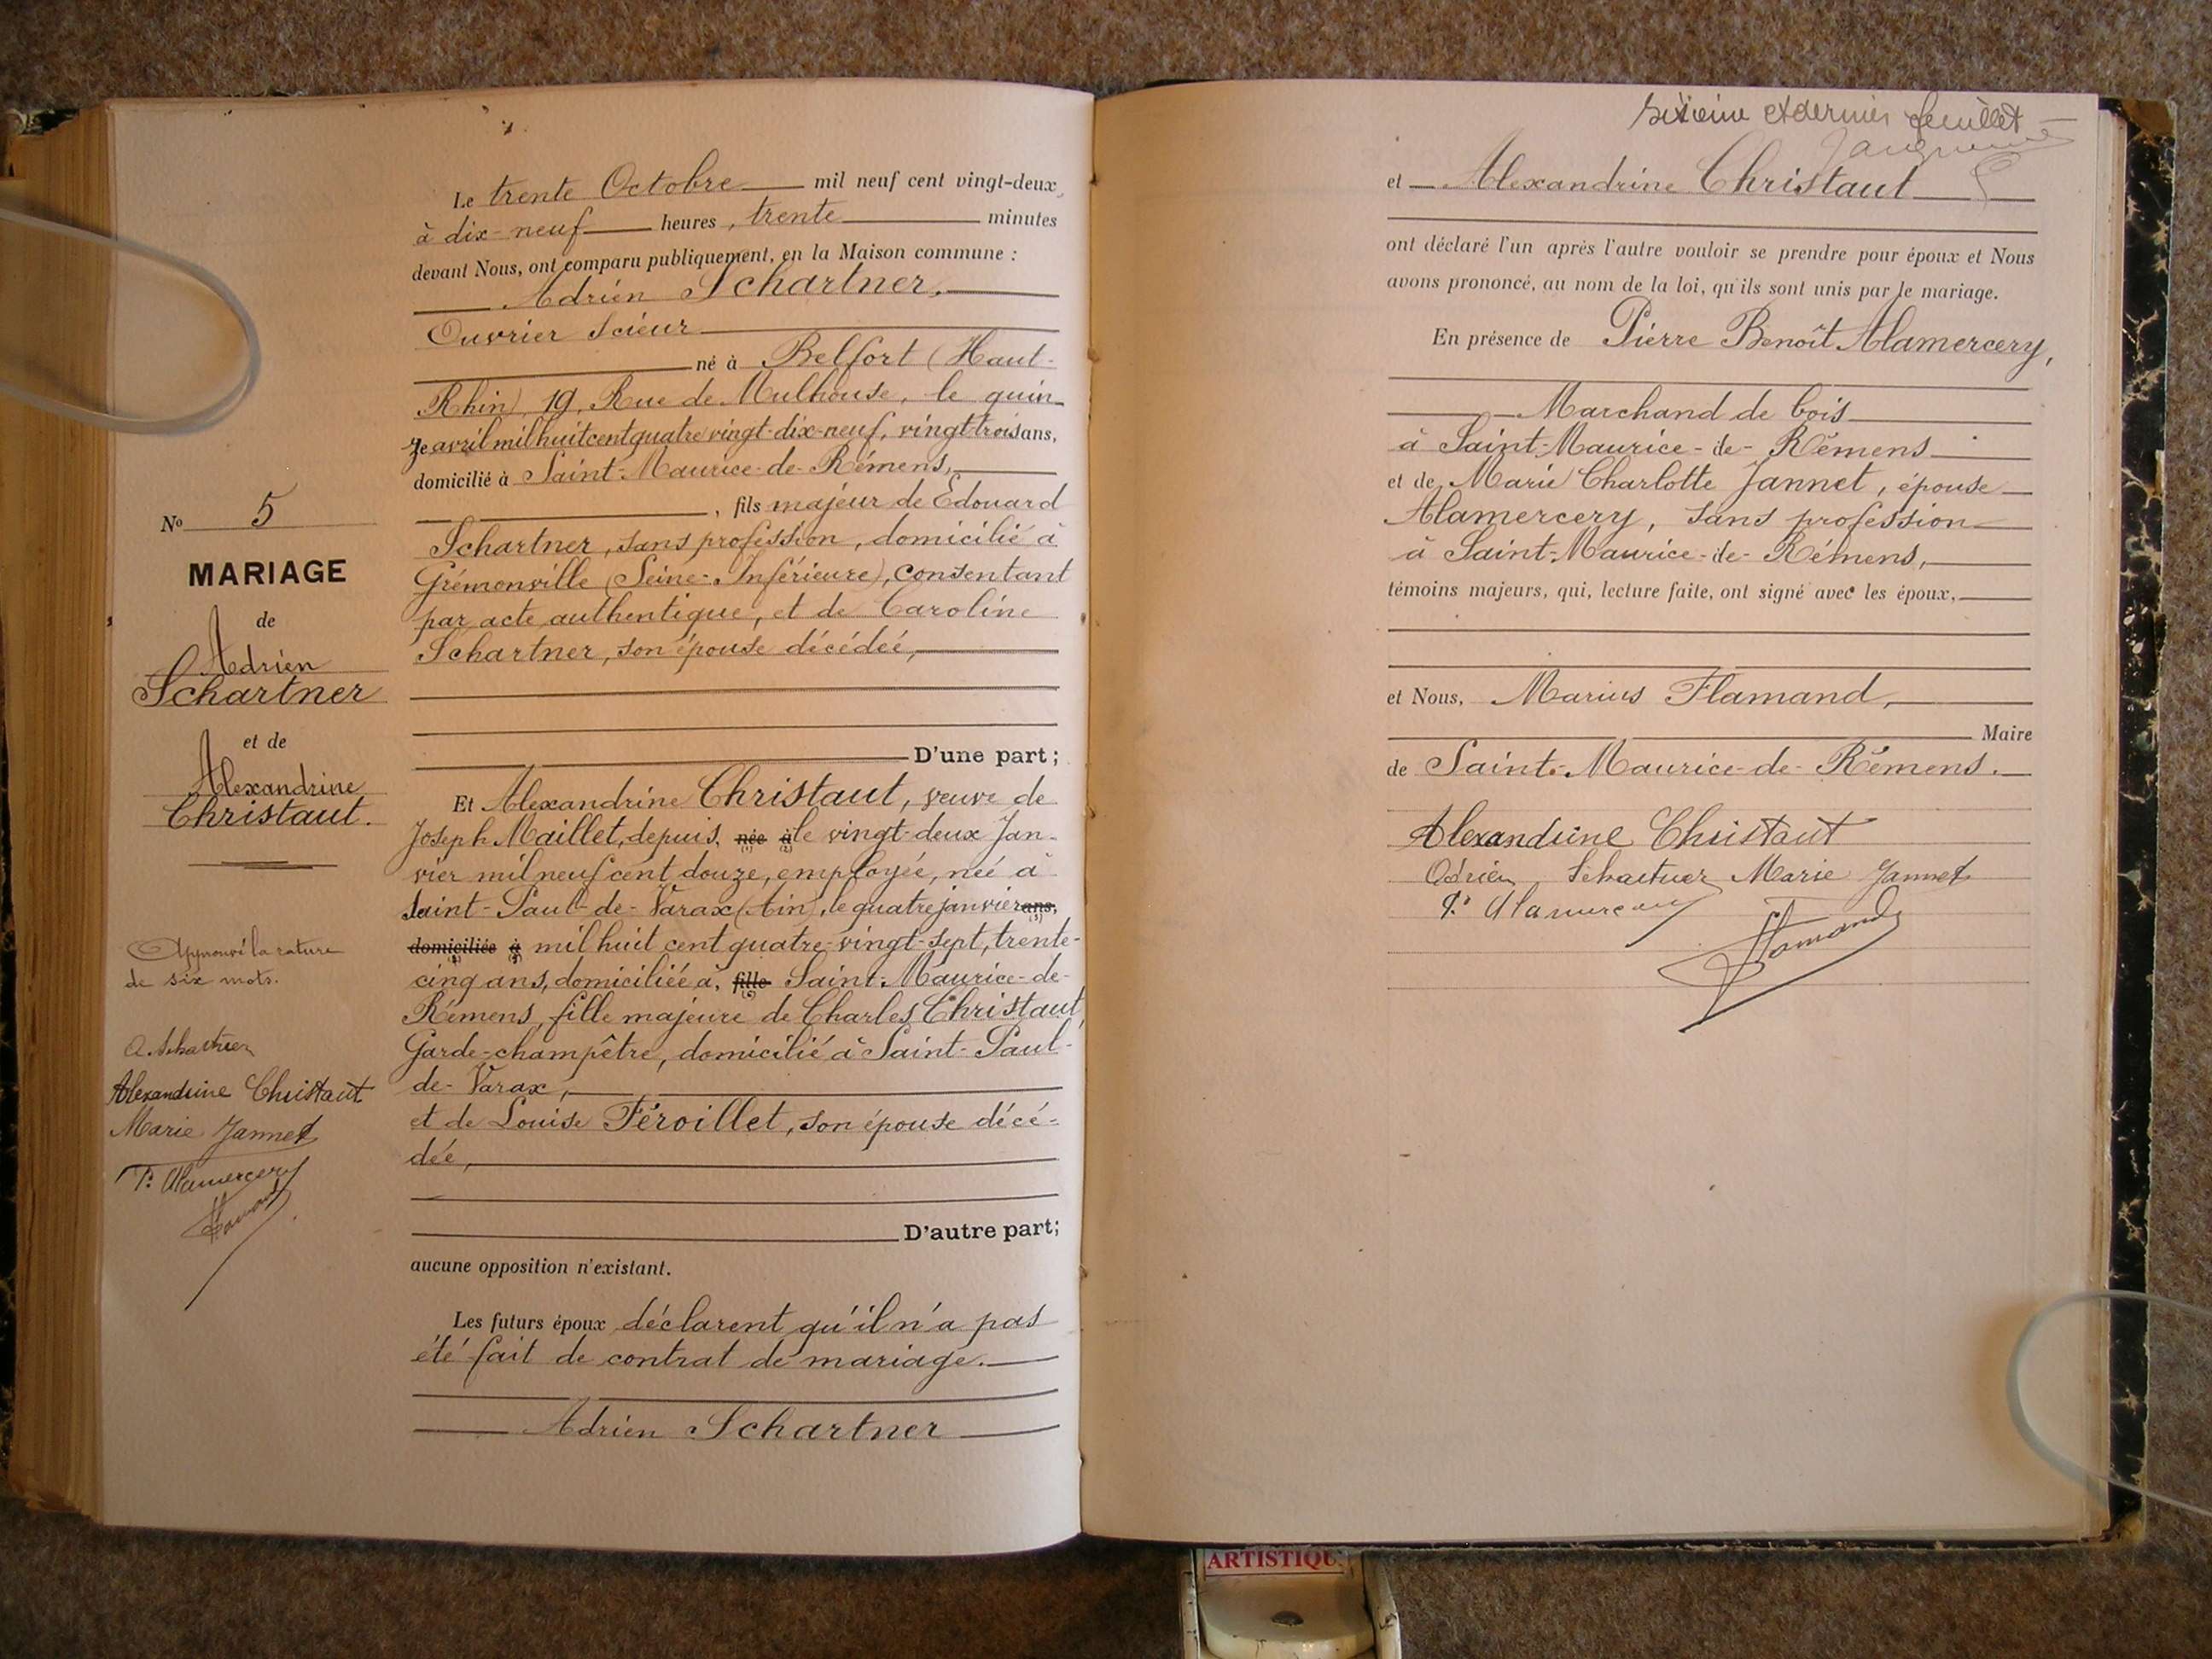 Le trente Octobre mil neuf cent vingt-deux,
à dix-neuf heures, trente minutes
devant Nous, ont comparu publiquement, en la Maison commune :
Adrien Schartner,
Ouvrier Scieur
né à Belfort (Haut-
Rhin), 19, Rue de Mulhouse, le quin-
ze avril mil huit cent quatre vingt-dix-neuf, vingt-trois ans,
domicilié à Saint-Maurice-de-Rémens,
, fils majeur de Edouard
Schartner, sans profession, domicilié à
Grémonville (Seine-Inférieure), consentant
par acte authentique, et de Caroline
Schartner, son épouse décédée,
D'une part;
Et Alexandrine Christaut, veuve de
Joseph Maillet, depuis, née (1) à (2) le vingt-deux Jan-
vier mil neuf cent douze, employée, née à
Saint-Paul-de-Varax (Ain), le quatre janvier ans, (3)
domiciliée (4) à (5) mil huit cent quatre-vingt-sept, trente-
cinq ans, domiciliée à, fille (6) Saint-Maurice-de-
Rémens, fille majeure de Charles Christaut,
Garde-champêtre, domicilié à Saint-Paul-
de-Varax,
et de Louise Féroillet, son épouse décé-
dée,
D'autre part;
aucune opposition n'existant.
Les futurs époux déclarent qu'il n'a pas
été fait de contrat de mariage.
Adrien Schartner
No 5
MARIAGE
de
Adrien
Schartner
et de
Alexandrine
Christaut.
Approuvé la rature
de six mots.
A. Schartner
Alexandrine Christaut
Marie Jannet
P. Alamercery
Flamand
sixième et dernier feuillet
et Alexandrine Christaut
ont déclaré l'un après l'autre vouloir se prendre pour époux et Nous
avons prononcé, au nom de la loi, qu'ils sont unis par le mariage.
En présence de Pierre Benoît Alamercery,
Marchand de bois
à Saint-Maurice-de-Rémens
et de Marie Charlotte Jannet, épouse
Alamercery, sans profession
à Saint-Maurice-de-Rémens,
témoins majeurs, qui, lecture faite, ont signé avec les époux,
et Nous, Marius Flamand,
Maire
de Saint-Maurice-de-Rémens.
Alexandrine Christaut
Adrien Schartner Marie Jannet
P. Alamercery
Flamand
ARTISTIQU